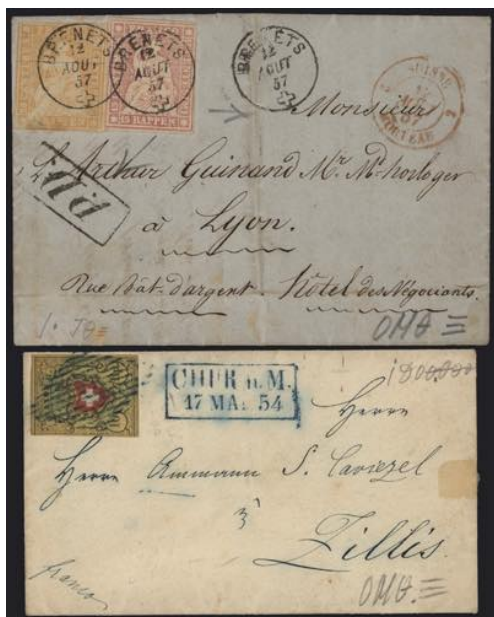 BRENETS
12
AOUT
57
BRENETS
12
AOUT
57
BRENETS
12
AOUT
57
SUISSE
2
15 RAPPEN
Monsieur
Arthur Guinand Mr. Md. horloger
P.D.
à Lyon.
Rue Bât-d'argent. Hôtel des Négociants.
OMΘ
CHUR n. M.
17 MAI 54
Herrn
Herrn Ammann S. Caviezel
Zillis.
franco